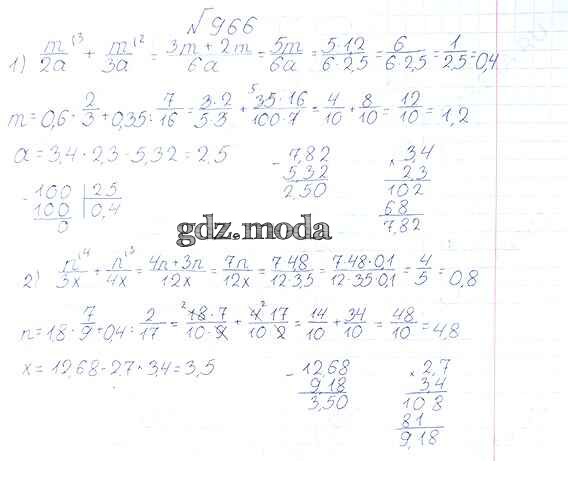 √966
1) m/2a ⁽³ + m/3a ⁽² = 3m + 2m/6a = 5m/6a = 5·1,2/6·2,5 = 6/6·2,5 = 1/2,5 = 0,4
m = 0,6 · 2/3 + 0,35 : 7/16 = 3·2/5·3 + 35·16/100·7 = 4/10 + 8/10 = 12/10 = 1,2
a = 3,4 · 2,3 - 5,32 = 2,5
- 7,82 x 3,4
5,32 2,3
2,50 102
68
7,82
- 100 | 25
100 | 0,4
0
gdz.moda
2) n/3x ⁽⁴ + n/4x ⁽³ = 4n + 3n/12x = 7n/12x = 7·4,8/12·3,5 = 7·48·0,1/12·35·0,1 = 4/5 = 0,8
n = 1,8 · 7/9 + 0,4 : 2/17 = 18·7/10·9 + 4·17/10·2 = 14/10 + 34/10 = 48/10 = 4,8
x = 12,68 - 2,7 · 3,4 = 3,5
- 12,68 x 2,7
9,18 3,4
3,50 108
81
9,18